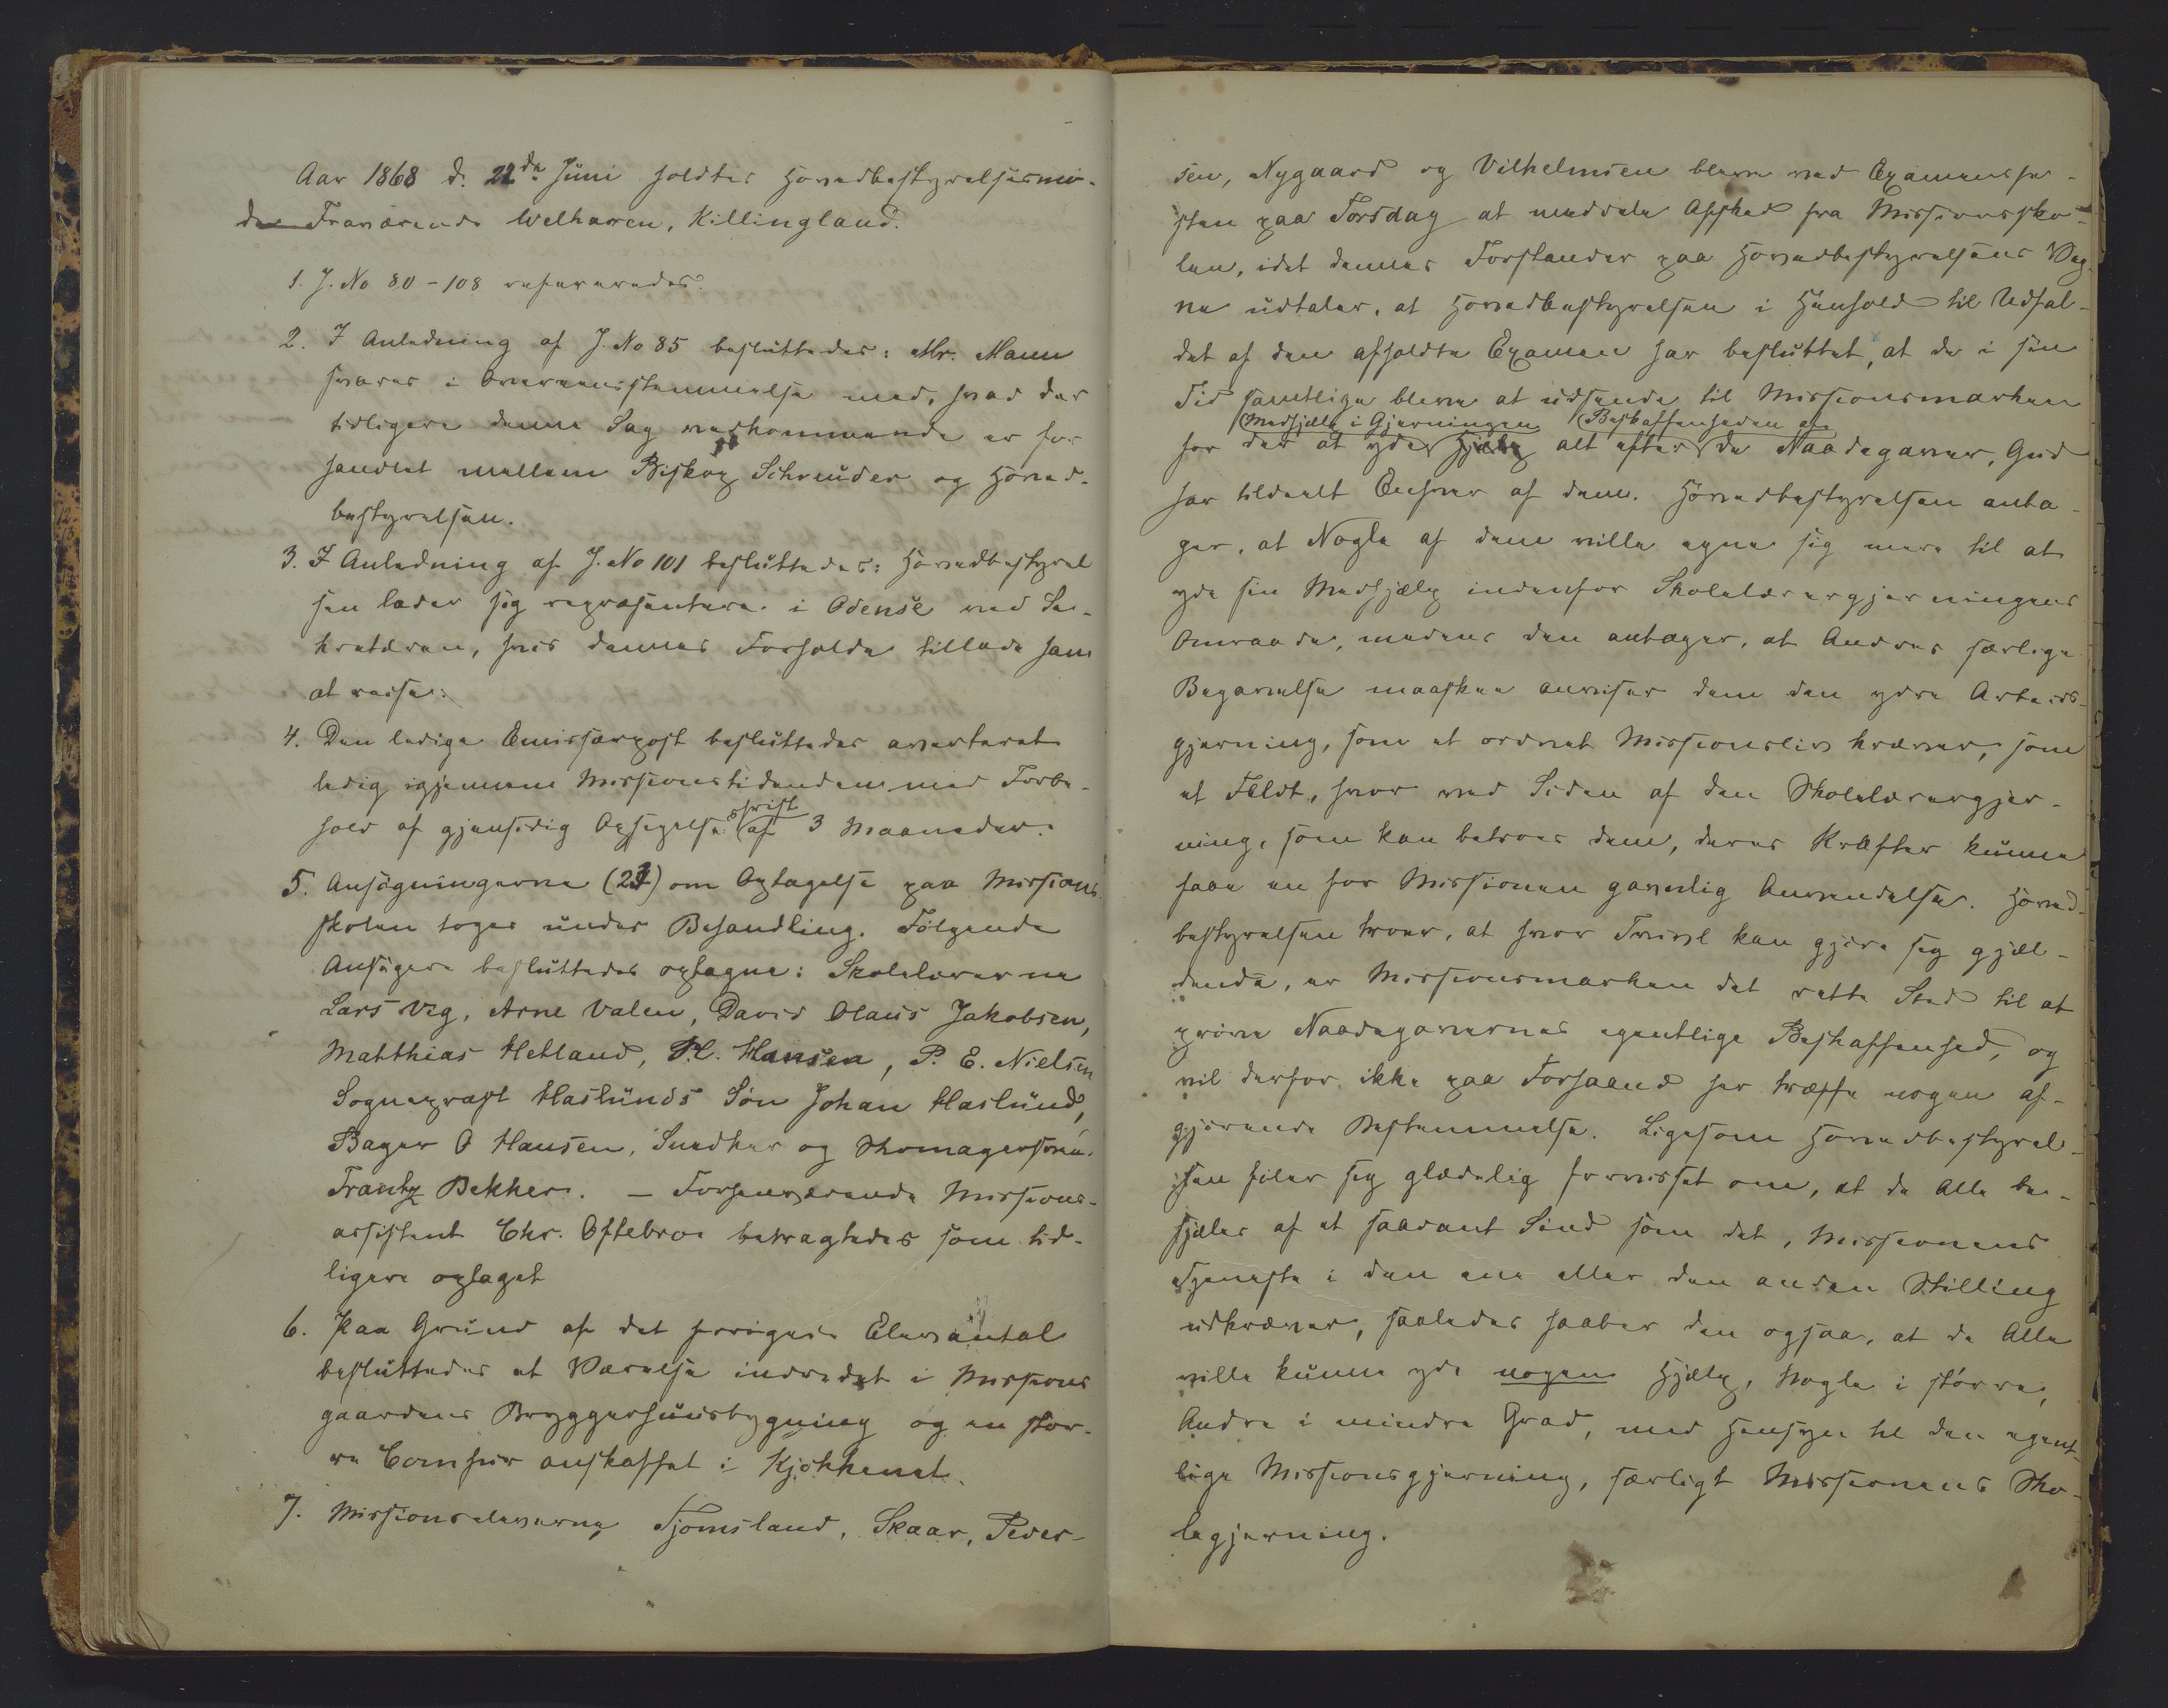 Aar 1868 d. 22de Juni holdtes Hovedbestyrelsesmö-
de Fraværende Welhaven, Killingland.
1. J. No 80-108 refereredes.
2. I Anledning af J. No 85 besluttedes: Mr. Mann
svares i Overeensstemmelse med, hvad der
tidligere denne Sag vedkommende er for
handlet mellem Biskop Schreuder og Hoved-
bestyrelsen.
3. I Anledning af J. No 101 besluttedes: Hovedbestyrel
sen lader sig repræsentere i Odense ved Se-
kretæren, hvis dennes Forholde tillade ham
at reise.
4. Den ledige Emissærpost besluttedes averteret
ledig igjennem Missionstidenden med Forbe-
hold af gjensidig Opsigelse frist af 3 Maaneder.
5. Ansögningerne (21) om Optagelse paa Missions
skolen toges under Behandling. Fölgende
Ansögere besluttedes optagne: Skolelærerne
Lars Vig, Arne Valen, David Olaus Jakobsen,
Matthias Hetland, H. Hansen, P. E. Nielsen
Sognepræst Haslunds Sön Johan Haslund,
Bager O Hansen, Snedker og Skomagersvend
Frantz Bekker. - Forhenværende Missions-
assistent Chr. Oftebroe betragtedes som tid-
ligere optaget
6. Paa Grund af det forögede Elevantal
besluttedes et Værelse indredet i Missions
gaardens Bryggerhuusbygning og en stör-
re Comfur anskaffet i Kjökkenet.
7. Missionseleverne Tjomsland, Skaar, Peder-
sen, Nygaard og Vilhelmsen bleve ved Examensfe-
sten paa Torsdag at meddele Afsked fra Missionssko-
len, idet dennes Forstander paa Hovedbestyrelsens Veg-
ne udtaler, at Hovedbestyrelsen i Henhold til Udfal-
det af den afholdte Examen har besluttet, at de i sin
Tid samtlige bleve at udsende til Missionsmarken
Medhjælp i Gjerningen Beskaffenheden af
for der at yde Hjælp alt efter de Naadegaver, Gud
har tildeelt Enhver af dem. Hovedbestyrelsen anta-
ger, at Nogle af dem ville egne sig mere til at
yde sin Medhjælp indenfor Skolelærergjerningens
Omraade, medens den antager, at Andres særlige
Begavelse maaskee anviser dem den ydre Arbeids-
gjerning, som et ordnet Missionsliv kræver, som
et Feldt, hvor ved Siden af den Skolelærergjer-
ning, som kan betroes dem, deres Kræfter kunne
faae en for Missionen gavnlig Anvendelse. Hoved-
bestyrelsen troer, at hvor Tvivl kan gjöre sig gjæl-
dende, er Missionsmarken det rette Sted til at
pröve Naadegavernes egentlige Beskaffenhed, og
vil derfor ikke paa Forhaand her træffe nogen af-
gjörende Bestemmelse. Ligesom Hovedbestyrel-
sen föler sig glædelig forvisset om, at de Alle be-
sjæles af et saadant Sind som det, Missionens
Tjeneste i den ene eller den anden Stilling
udkræver, saaledes haaber den ogsaa, at de Alle
ville kunne yde nogen Hjælp, Nogle i större,
Andre i mindre Grad, med Hensyn til den egent-
lige Missionsgjerning, særligt Missionens Sko-
legjerning.